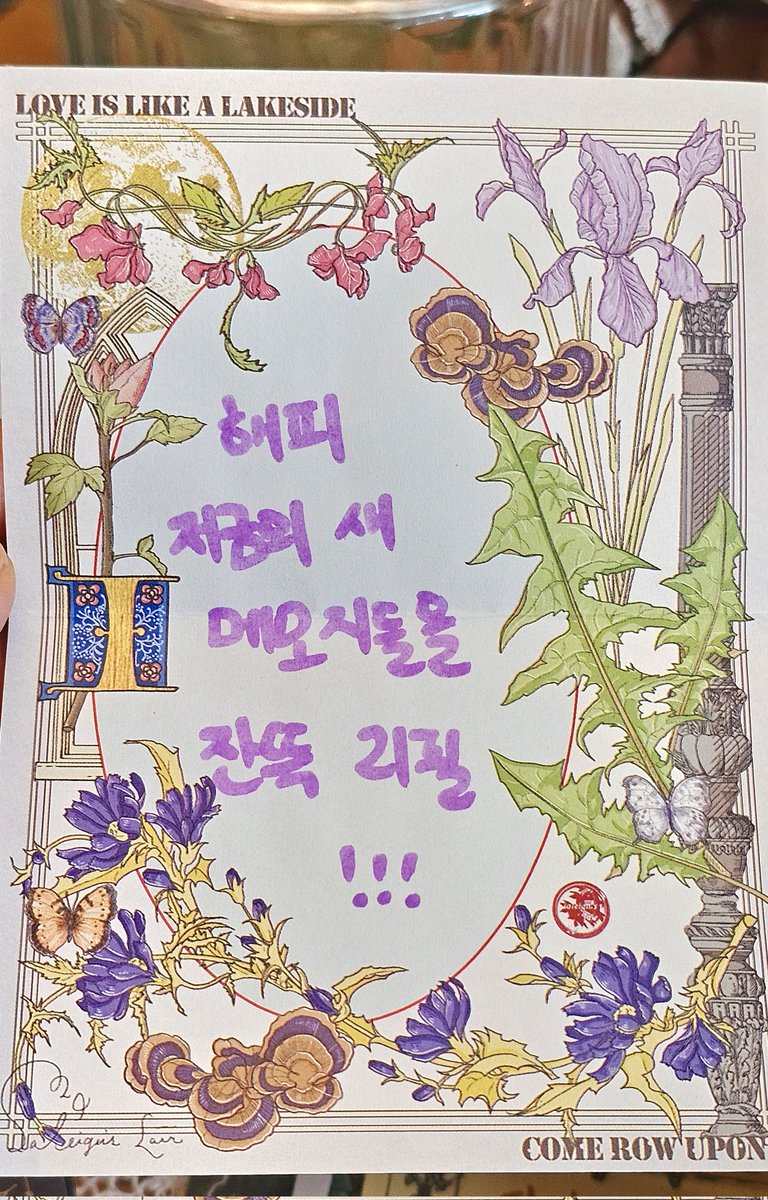 LOVE IS LIKE A LAKESIDE
해피
저궁의 새
메오지들을
잔뜩 리필
!!!
COME ROW UPON